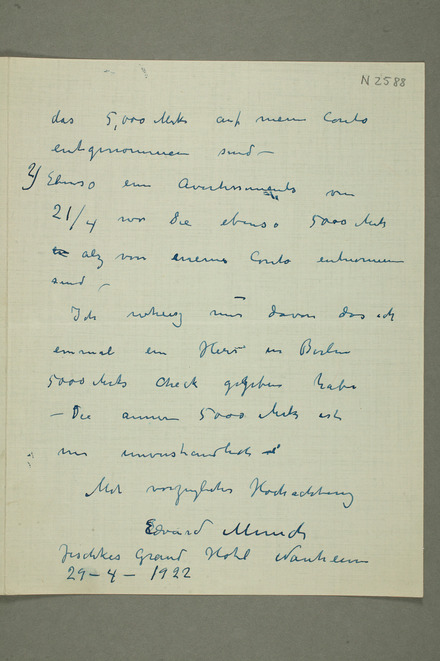 N 2588
das 5,000 Mks auf mein Conto
entgenommen sind –
2) Ebenso ein Avertissements von
21/4 wo die ebenso 5000 Mk
als von meinem Conto entnommen
sind –
Ich weis nur davon das ich
einmal ein Herr in Berlin
5000 Mks Check gegeben habe
– Die annern 5000 Mks ist
mir unverstandlich
Mit vorzuglicher Hochachtung
Edvard Munch
Grand Hotel Nauheim
29 – 4 – 1922